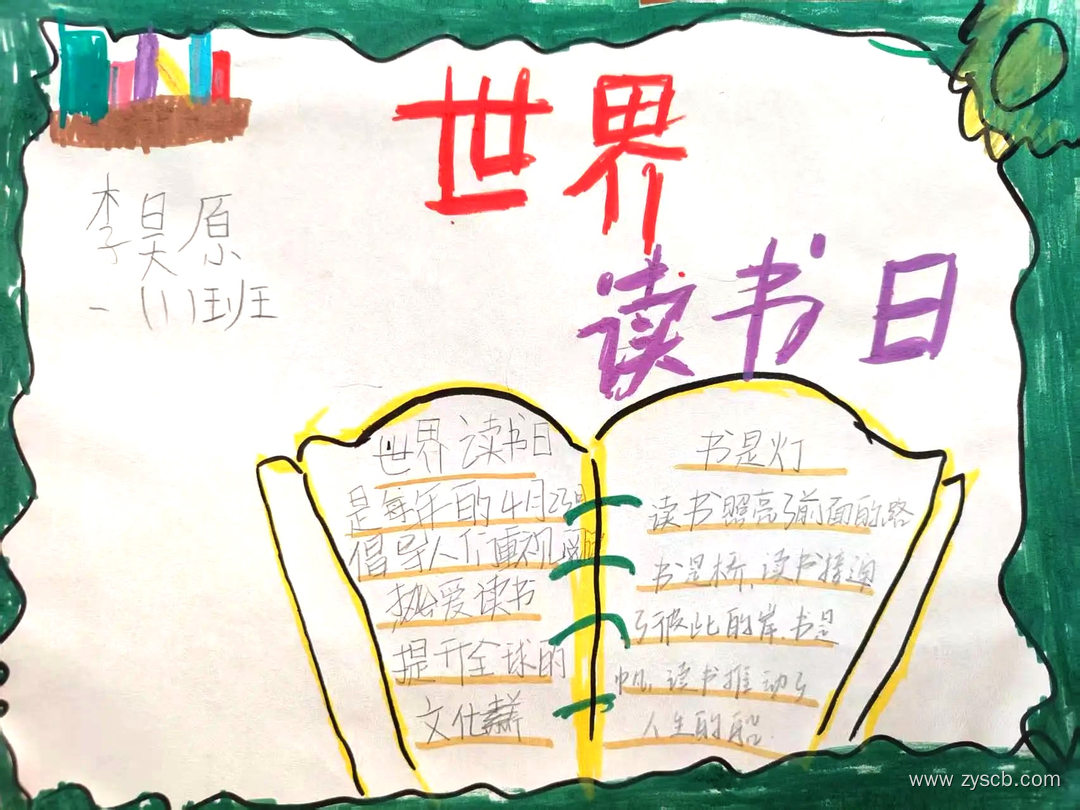 世界
读书日
李昊原
一(1)班
世界读书日
是每年的4月23日
倡导人们重视阅读
热爱读书
提升全球的
文化素养
书是灯
读书照亮了前面的路
书是桥、读书接通
了彼此的岸、书是
帆、读书推动了
人生的船.
www.zyscb.com